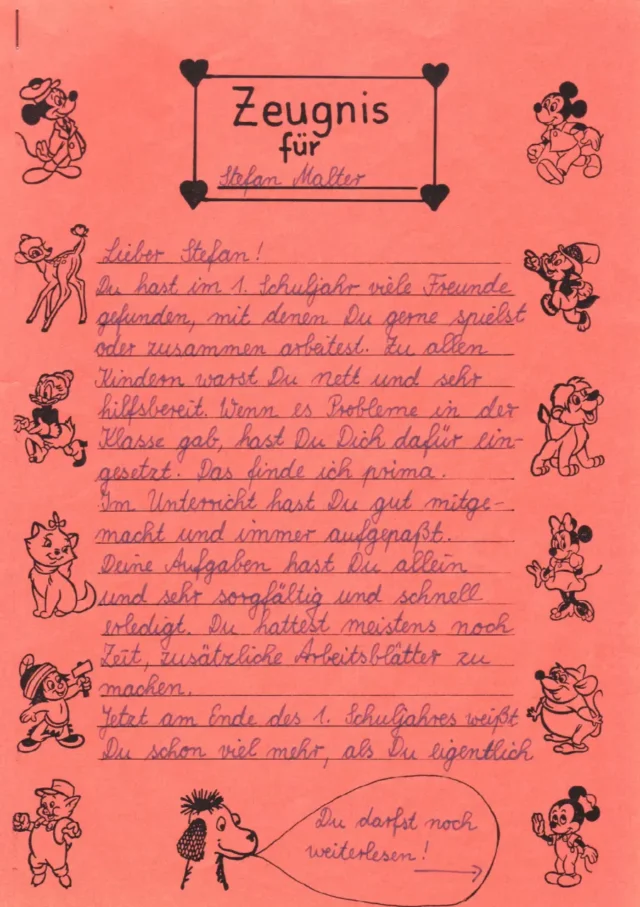 Zeugnis
für
Stefan Malter
Lieber Stefan!
Du hast im 1. Schuljahr viele Freunde
gefunden, mit denen Du gerne spielst
oder zusammen arbeitest. Zu allen
Kindern warst Du nett und sehr
hilfsbereit. Wenn es Probleme in der
Klasse gab, hast Du Dich dafür ein-
gesetzt. Das finde ich prima.
Im Unterricht hast Du gut mitge-
macht und immer aufgepaßt.
Deine Aufgaben hast Du allein
und sehr sorgfältig und schnell
erledigt. Du hattest meistens noch
Zeit, zusätzliche Arbeitsblätter zu
machen.
Jetzt am Ende des 1. Schuljahres weißt
Du schon viel mehr, als Du eigentlich
Du darfst noch
weiterlesen!